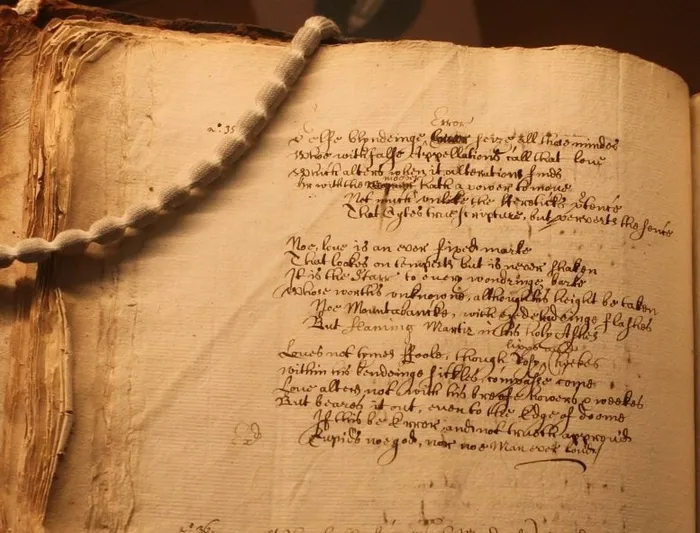 Error
a: 35 Selfe blyndeinge seize all those mindes
Whoe with false Appellations call that love
Which alters when it alteration finds
mover
Or with the hath a power to move
Not much unlike the Hereticks p'tence
That Cytes true scripture, but perverts the sence
Noe, love is an ever fixed marke
That lookes on tempests but is never shaken
It is the Starr to every wandringe barke
Whose worth's unknowne, although his height be taken
Noe Mountebancke, with eye deludeinge flashes
But flaming Martir in his holy Ashes
lipps and
Loves not tymes ffoole, though Rosy Cheekes
within his bendeinge sickles compasse come
Love alters not with his breife howers & weekes
But beares it out, even to the Edge of doome
If this be Error and not truth approvd
Cupids noe god, nor noe Man ever lovd